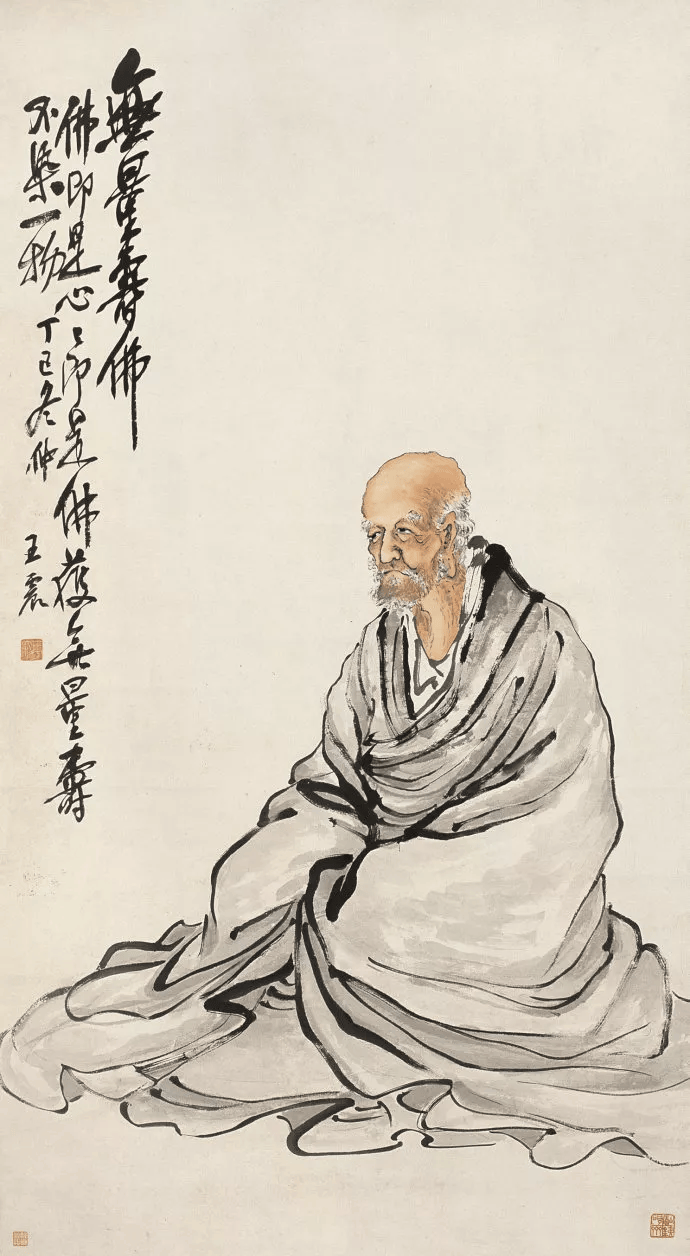 無量壽佛
佛即是心心即是佛獲無量壽
不染一物丁巳冬仲
王震